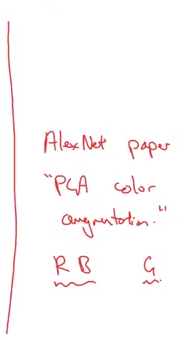 AlexNet paper
"PCA color
augmentation."
R B G